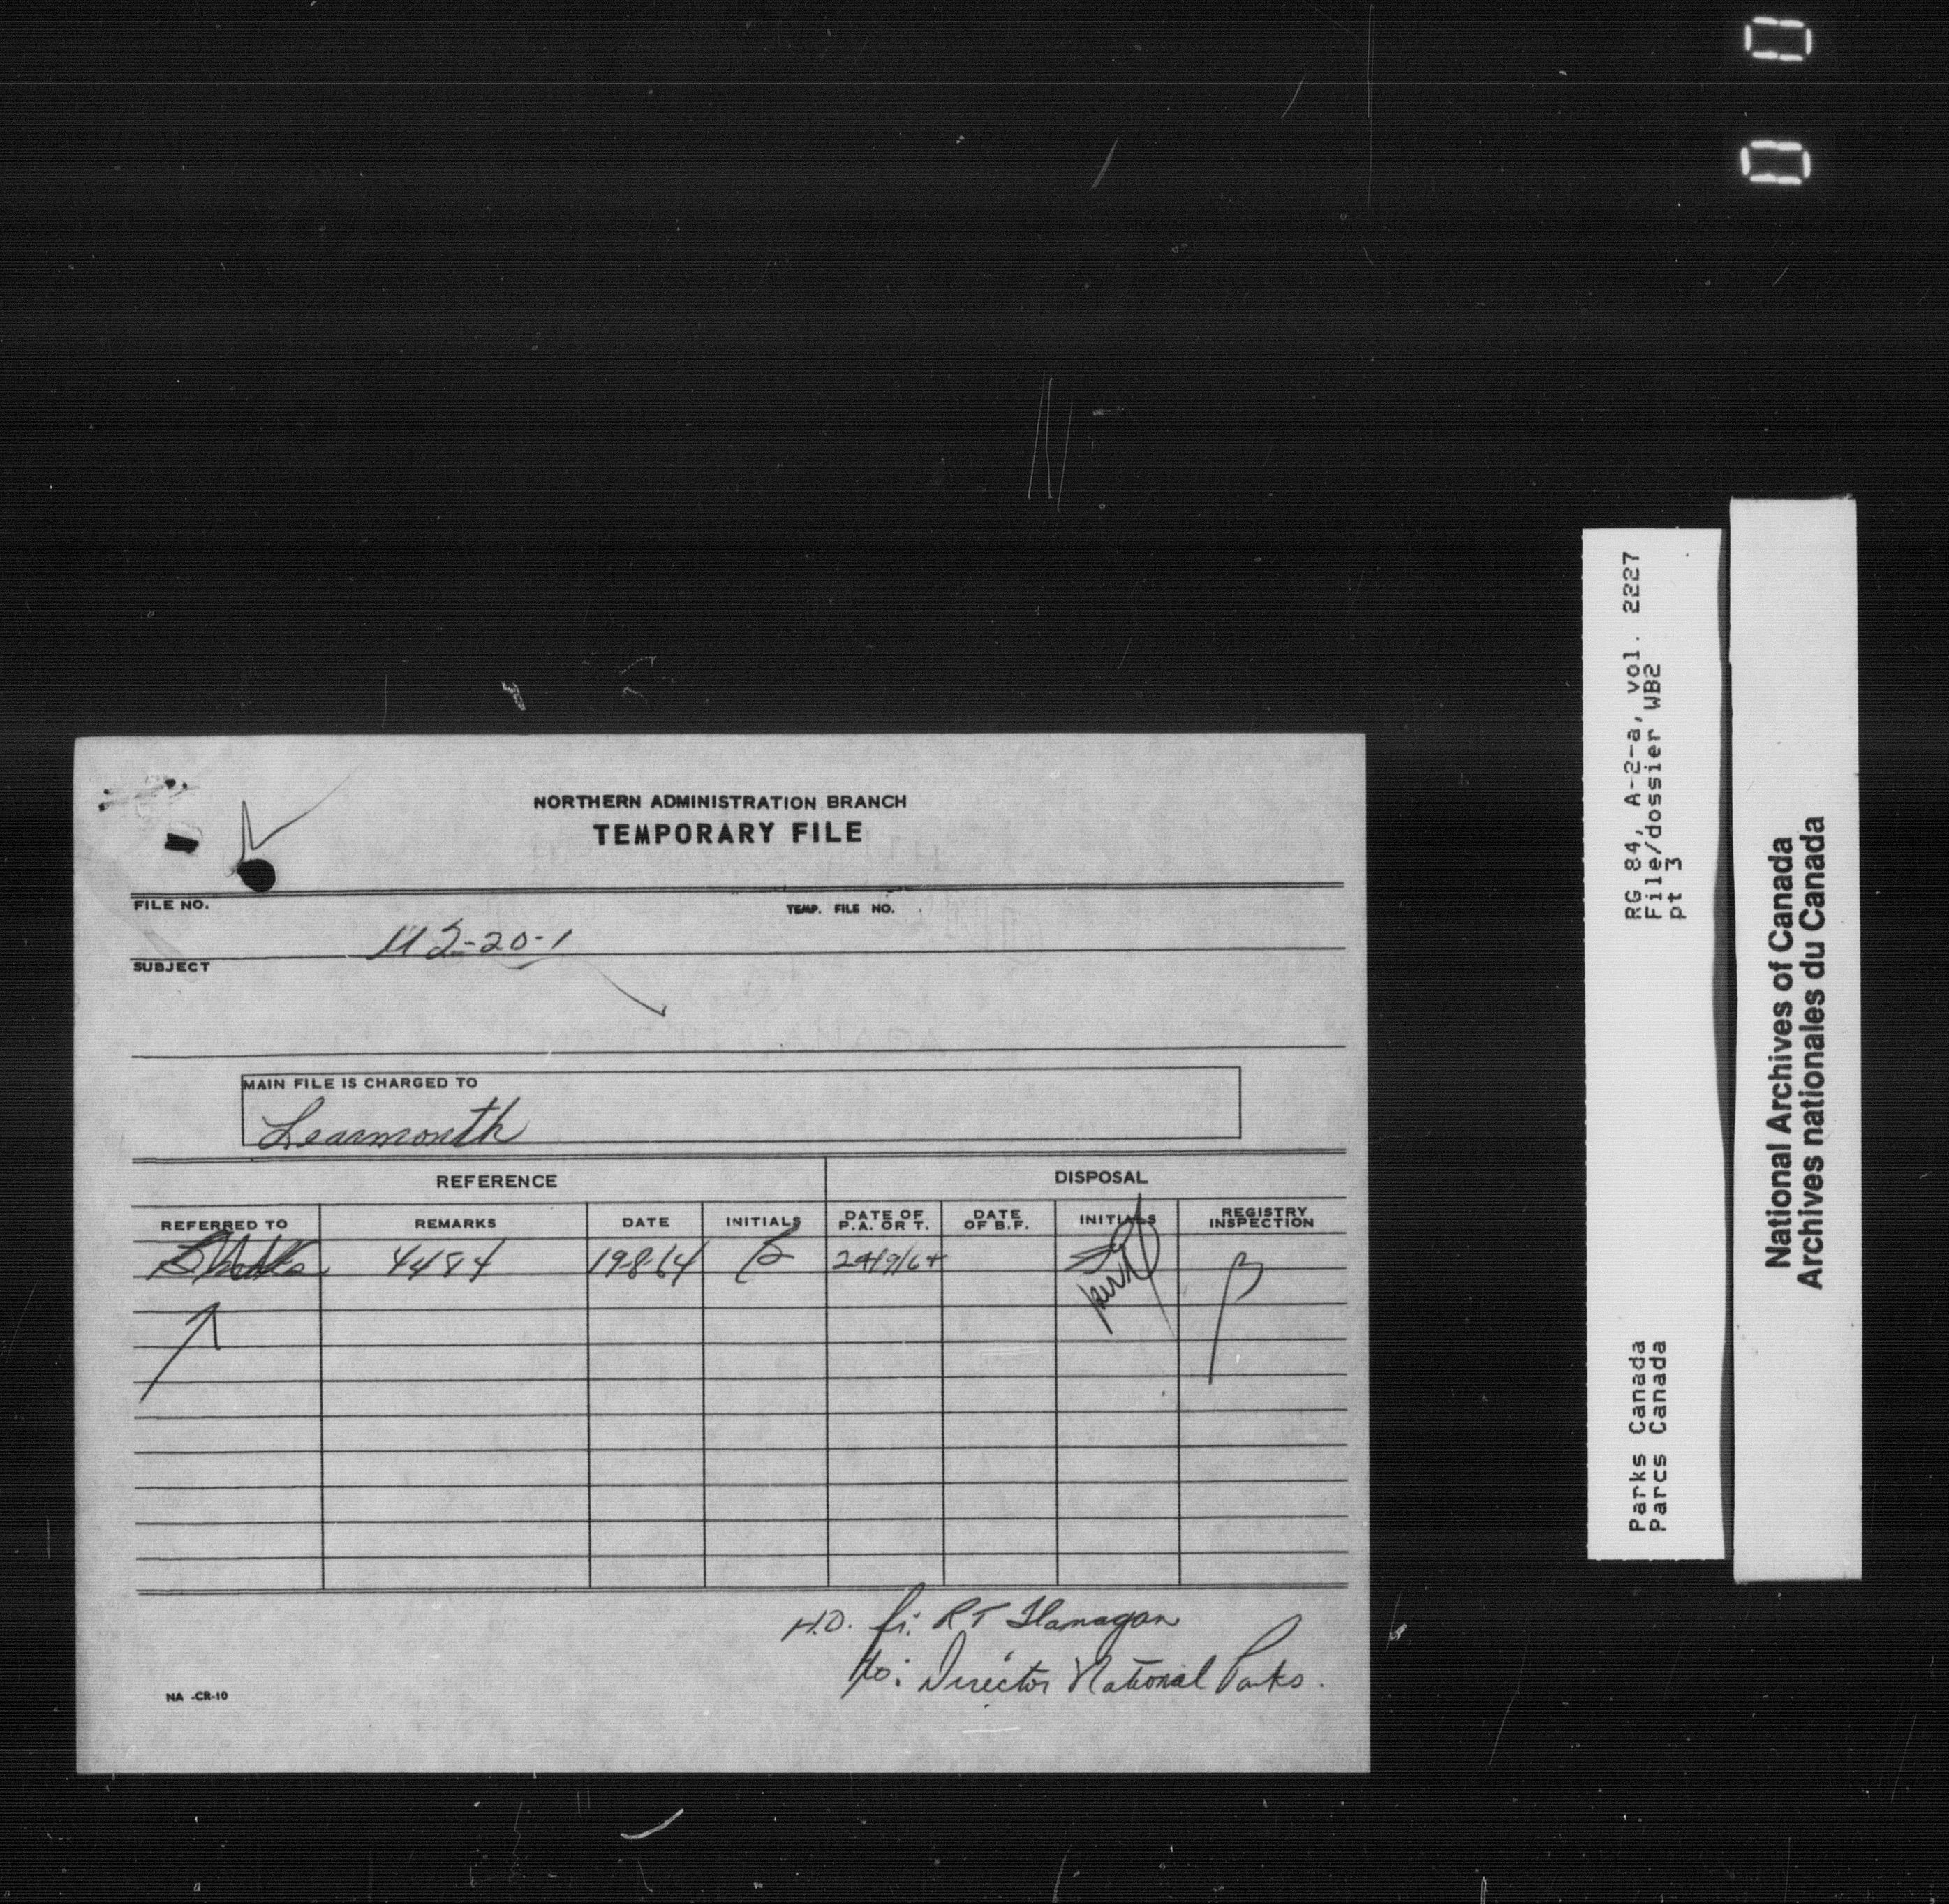 NORTHERN ADMINISTRATION BRANCH
TEMPORARY FILE
FILE NO.
TEMP. FILE NO.
SUBJECT
MAIN FILE IS CHARGED TO
Learmonth
REFERENCE
DISPOSAL
REFERRED TO
REMARKS
DATE
INITIALS
DATE OF P.A. OR T.
DATE OF B.F.
INITIALS
REGISTRY INSPECTION
19-8-64
24/9/64
H.O. fr: RT Flanagan
to: Director National Parks.
NA -CR-10
RG 84, A-2-a, vol. 2227
File/dossier WB2
pt 3
Parks Canada
Parcs Canada
National Archives of Canada
Archives nationales du Canada
0 0